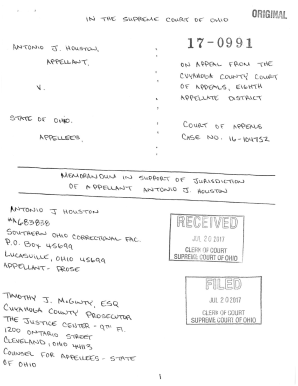 ORIGINAL
IN THE SUPREME COURT OF OHIO
17-0991
ANTONIO J. HOUSTON,
APPELLANT,
V.
STATE OF OHIO.
APPELLEES
ON APPEAL FROM THE
CUYAHOGA COUNTY COURT
OF APPEALS, EIGHTH
APPELLATE DISTRICT
COURT OF APPEALS
CASE NO. 16-104752
MEMORANDUM IN SUPPORT OF JURISDICTION
OF APPELLANT ANTONIO J. HOUSTON
ANTONIO J HOUSTON
#A683838
SOUTHERN OHIO CORRECTIONAL FAC.
P.O. BOX 45699
LUCASVILLE, OHIO 45699
APPELLANT - PROSE
RECEIVED
JUL 20 2017
CLERK OF COURT
SUPREME COURT OF OHIO
TIMOTHY J. MCGINTY, ESQ
CUYAHOGA COUNTY PROSECUTOR
THE JUSTICE CENTER - 9TH FL.
1200 ONTARIO STREET
CLEVELAND, OHIO 44113
COUNSEL FOR APPELLEES - STATE
OF OHIO
FILED
JUL 20 2017
CLERK OF COURT
SUPREME COURT OF OHIO
1